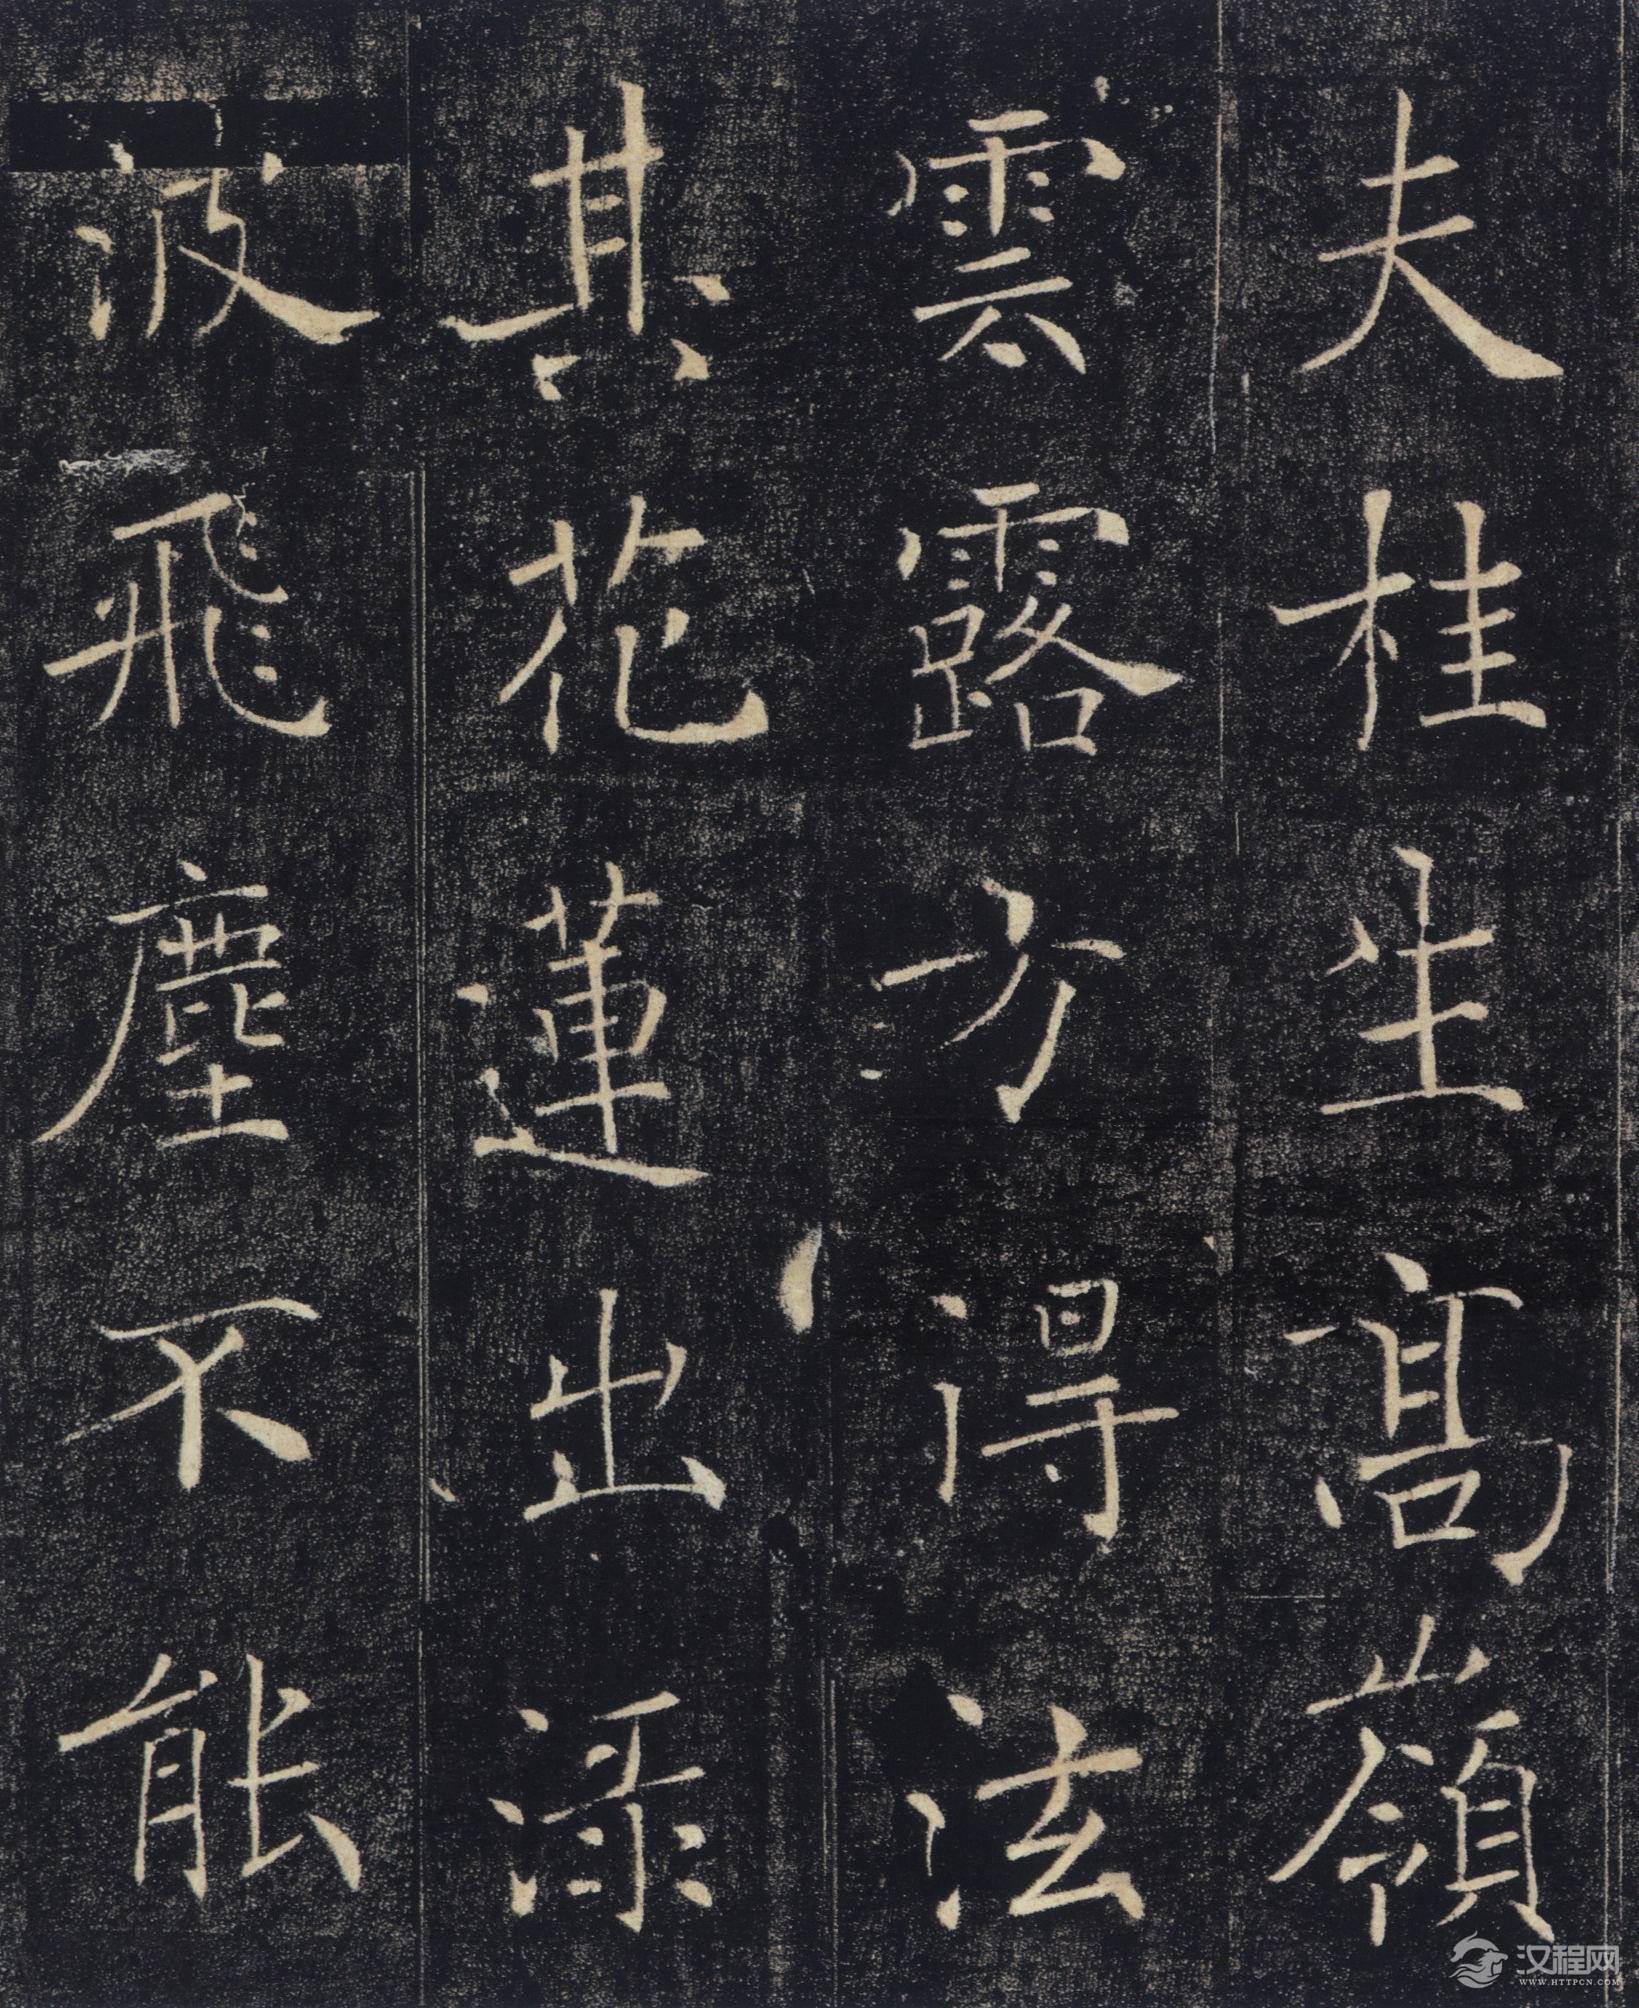 夫桂生高嶺
雲露方得泫
其花蓮出淥
波飛塵不能
汉程网
WWW.HTTPCN.COM